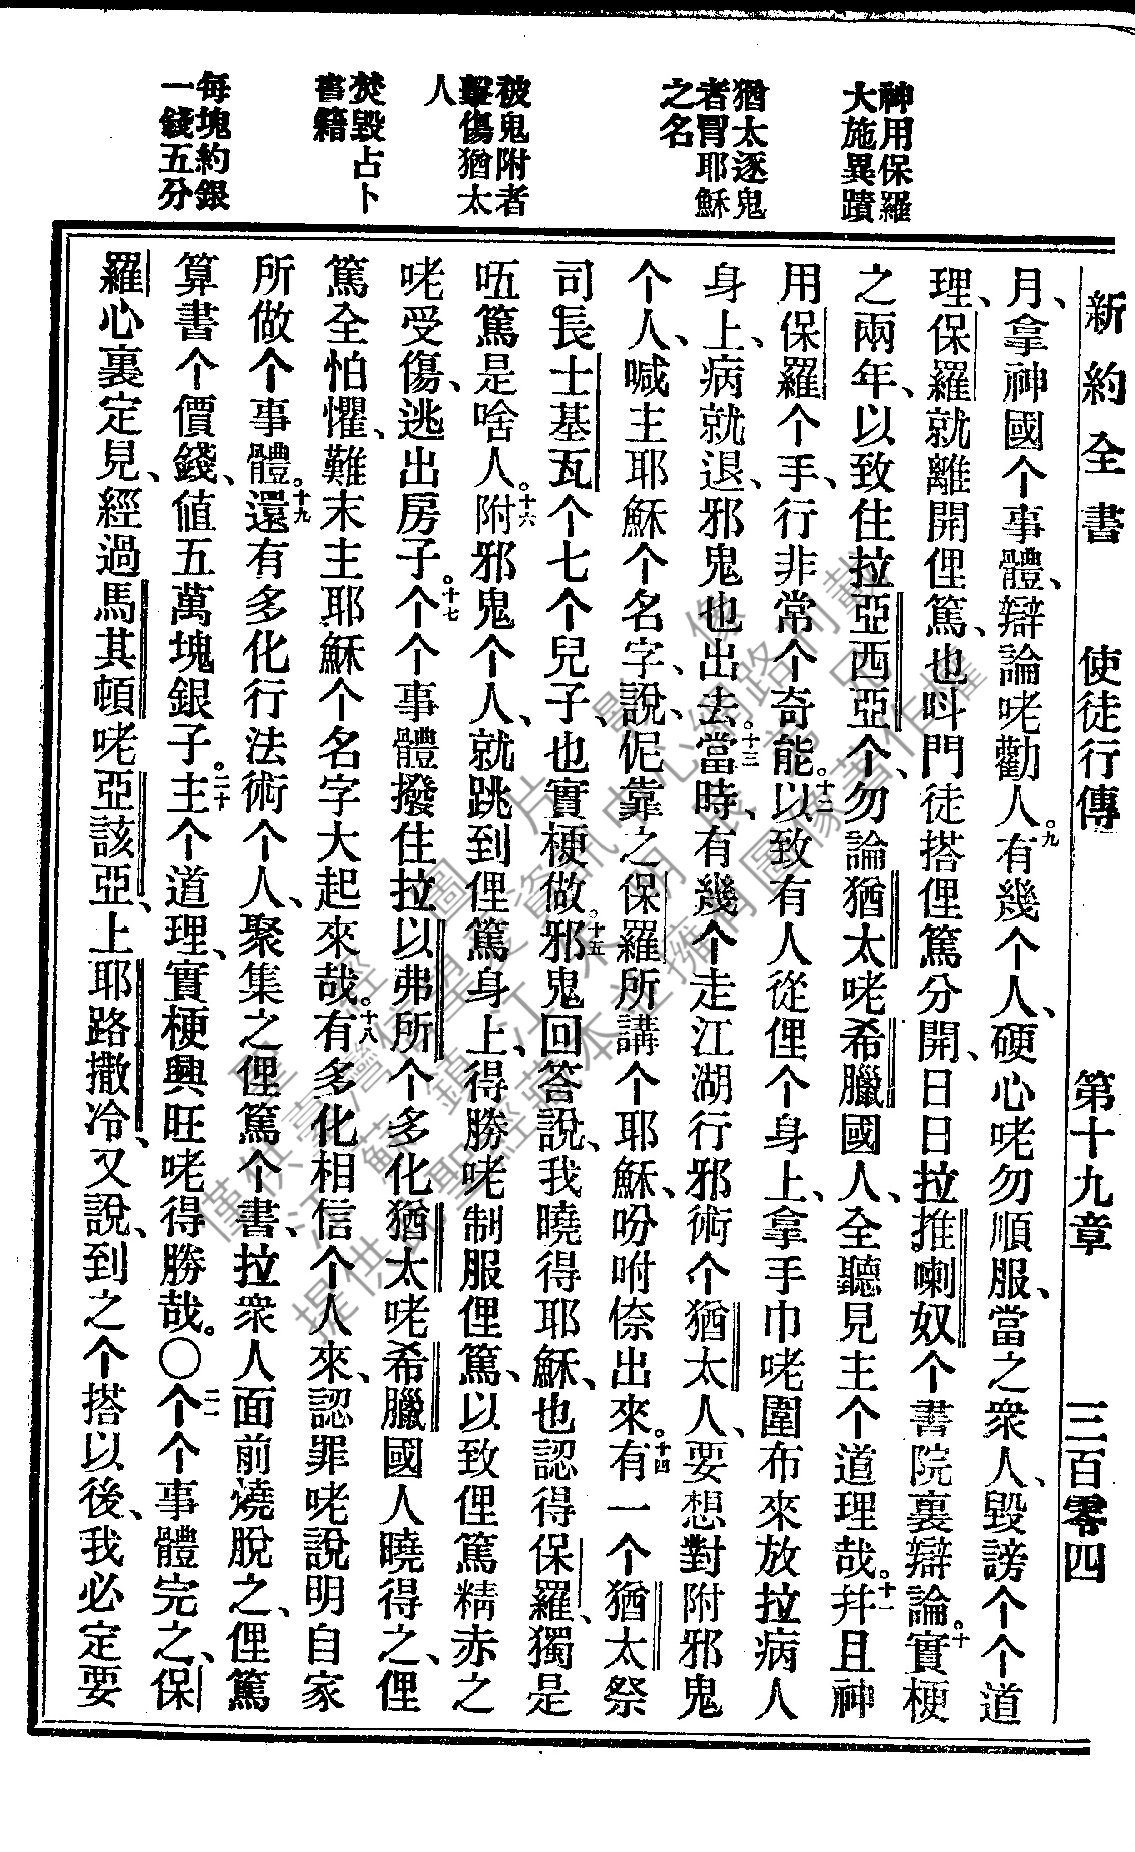 新約全書 使徒行傳 第十九章 三百零四
神用保羅
大施異蹟
猶太逐鬼
者冒耶穌
之名
被鬼附者
擊傷猶太
人
焚毀占卜
書籍
每塊約銀
一錢五分
月、拿神國个事體、辯論咾勸人。九有幾个人、硬心咾勿順服、當之衆人、毀謗个个道
理、保羅就離開俚篤、也呌門徒搭俚篤分開、日日拉推喇奴个書院裏辯論。十實梗
之兩年、以致住拉亞西亞个、勿論猶太咾希臘國人、全聽見主个道理哉。十一幷且神
用保羅个手、行非常个奇能。十二以致有人從俚个身上、拿手巾咾圍布來放拉病人
身上、病就退、邪鬼也出去。十三當時、有幾个走江湖行邪術个猶太人、要想對附邪鬼
个人、喊主耶穌个名字、說、伲靠之保羅所講个耶穌、吩咐倷出來。十四有一个猶太祭
司長士基瓦个七个兒子、也實梗做。十五邪鬼回答說、我曉得耶穌、也認得保羅、獨是
唔篤是啥人。十六附邪鬼个人、就跳到俚篤身上、得勝咾制服俚篤、以致俚篤精赤之
咾受傷、逃出房子。十七个个事體撥住拉以弗所个多化猶太咾希臘國人曉得之、俚
篤全怕懼、難末主耶穌个名字大起來哉。十八有多化相信个人來、認罪咾說明自家
所做个事體。十九還有多化行法術个人、聚集之俚篤个書、拉衆人面前燒脫之、俚篤
算書个價錢、値五萬塊銀子。二十主个道理、實梗興旺咾得勝哉。〇二一个个事體完之、保
羅心裏定見、經過馬其頓咾亞該亞、上耶路撒冷、又說、到之个搭以後、我必定要